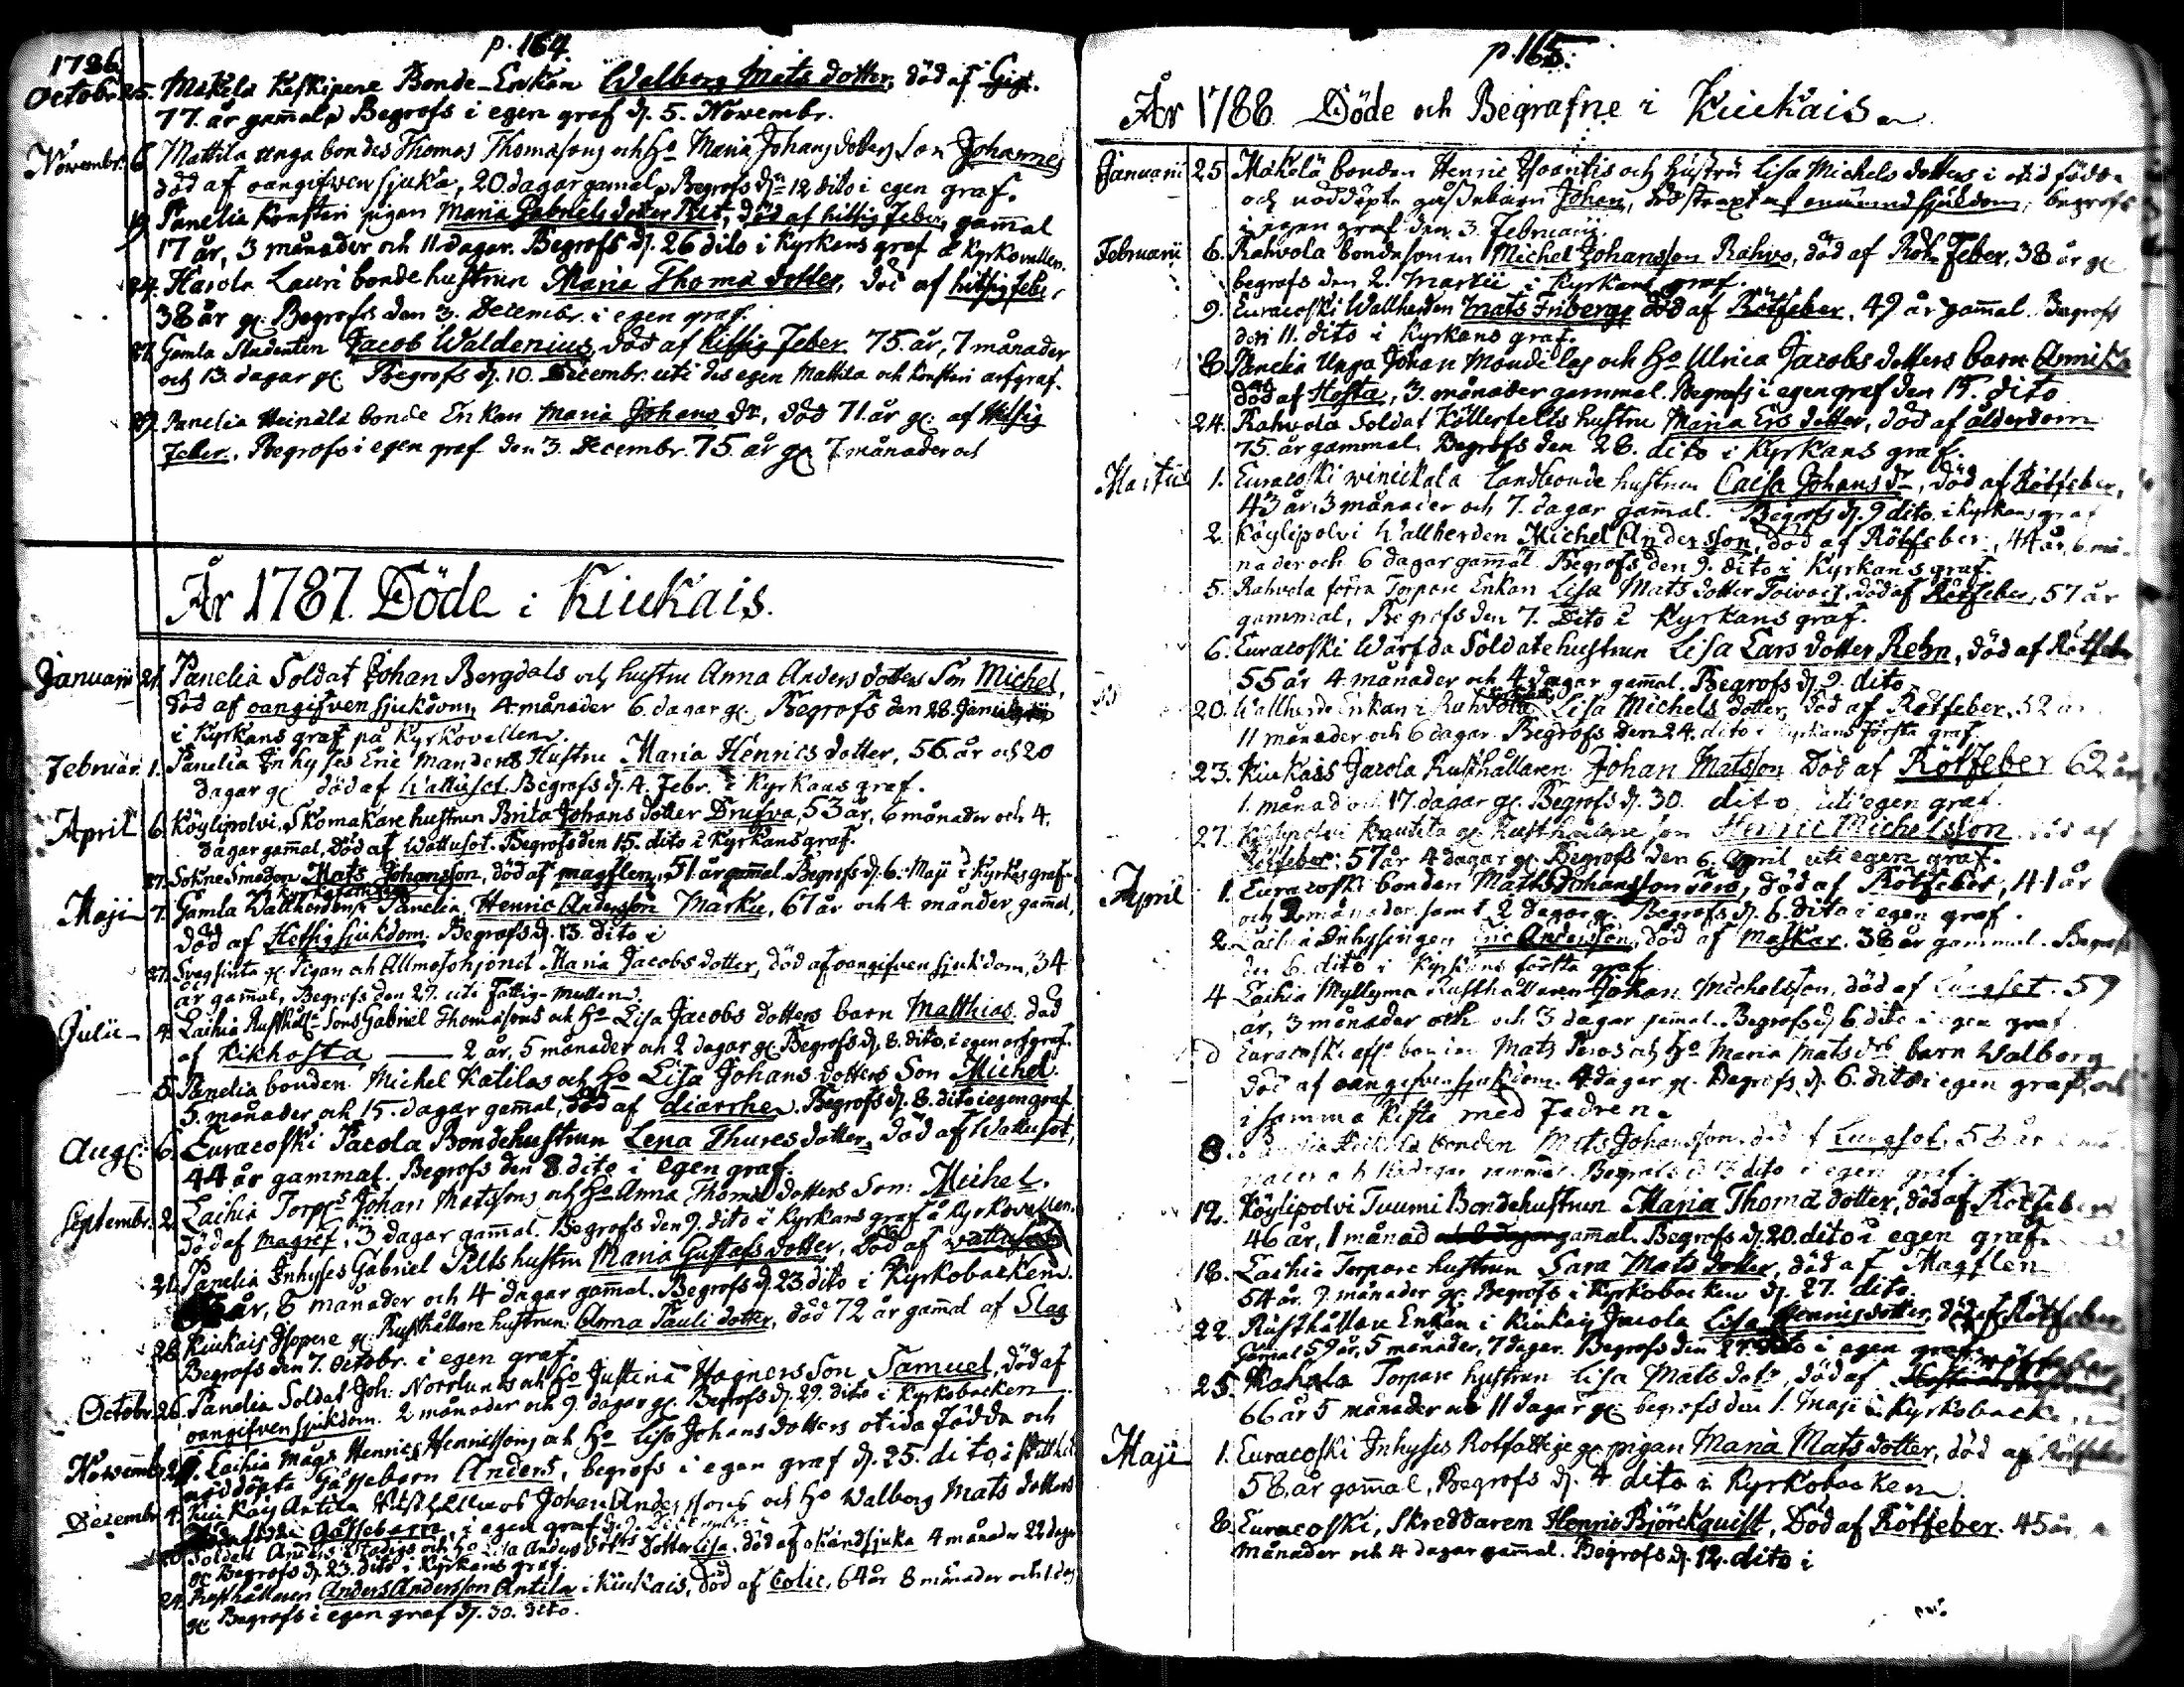 p. 164.
1786
Octobr. 25. Mäkelä Keskipere Bonde-Enkan Walborg Mats dotter, död af Gigt.
77. år gam̄al. Begrofs i egen graf d. 5. Novembr.
Novembr. 6. Mattila unga bondes Thomas Thomæsons och Ho Maria Johans dotters Son Johannes
död af oangifwen sjuka, 20. dagar gamal, Begrofs dn 12 dito i egen graf.
19. Panelia Konsteri pigan Maria Gabriels dotter, död af hitsig feber, gam̄al
17 år, 3 månader och 11. dagar. Begrofs d. 26 dito i Kyrkans graf å Kyrkovallen.
24. Harola Lauri bonde hustrun Maria Thomæ dotter, död af hitsig feber
38 år gl. Begrofs den 3. Decembr. i egen graf.
27. Gamla Studenten Jacob Waldenius, död af hitsig Feber 75. år, 7 månader
och 13. dagar gl. Begrofs d. 10. Decembr. uti des egen Mattila och Konsteri arfgraf.
29. Panelia Heinälä bonde Enkan Maria Johans Dr, död 71. år gl. af Hitsig
Feber, Begrofs i egen graf den 3. Decembr. 75. år gl. 7 månader och
År 1787. Döde i Kiukais.
Januarii 21. Panelia Soldat Johan Bergdals och hustru Anna Anders dotters Son Michel,
död af oangifven sjukdom, 4. månader 6. dagar gl. Begrofs den 28. Januarii
i Kyrkans graf på Kyrkovallen.
Februar. 1. Panelia Inhyses Eric Mandens Hustru Maria Henrics dotter, 56. år och 20
dagar gl. död af Wattusot. Begrofs d. 4. Febr. i Kyrkans graf.
April 6. Köylipolvi Skomakare hustrun Brita Johans dotter Drufva, 53 år, 6 månader och 4.
dagar gam̄al, Död af Wattusot. Begrofs den 15. dito i Kyrkans graf.
27. Sokne Smeden Mats Johansson, död af magflen, 51. år gam̄al. Begrofs d. 6. Maji i Kyrkas graf
Maji 7. Gamla Wallherden i Panelia, Henric Andersson Marku, 67 år och 4 månder gam̄al,
död af Hetsig sjukdom. Begrofs d. 13. dito i
27. gl. Pigan och Allmosehjonet Maria Jacobs dotter, död af oangifven sjukdom, 34
år gam̄al, Begrofs den 29. uti Fattig-mullen.
Julii 4. Laihia Rusth. Sons Gabriel Thomæsons och Ho Lisa Jacobs dotters barn Matthias död
af Kikhosta 2 år, 5 månader och 2 dagar gl. Begrofs d. 8. dito, i egen arfgraf.
5. Panelia bonden Michel Katilas och Ho Lisa Johans dotters Son Michel
5. månader och 15. dagar gam̄al, död af diarrhe. Begrofs d. 8. dito i egen graf
Aug: 6. Euracoski Pacola Bondehustrun Lena Thures dotter, död af Wattusot,
44 år gammal. Begrofs den 8. dito i egen graf.
Septembr. 2. Laihia Torprs Johan Matssons och Ho Anna Thomæ dotters Son: Michel,
död af magref, 3 dagar gam̄al. Begrofs den 9. dito i Kyrkans graf å Kyrkovallen.
21. Panelia Inhyses Gabriel Pilts hustru Maria Gustafs dotter, Död af Wattusot
år, 6 månader och 4 dagar gam̄al. Begrofs d. 23. dito i Kyrkobacken.
28. Kiukais Isopere gl. Rusthållare hustrun: Anna Pauli dotter, död 72 år gam̄al af Slag
Begrofs den 7. Octobr. i egen graf.
Octobr. 26. Panelia Soldat Joh: Norrlunds och Ho Justina Hagners Son Samuel, död af
oangifven sjukdom. 2 månader och 9. dagar gl. Begrofs d. 29. dito i Kyrkobacken
Novembr. Laihia Mågs Henrics Henricssons och Ho Lisa Johans dotters otida födda och
nöddöpta Gåssebarn Anders, begrofs i egen graf d. 25. dito, i
Decembr. 4. Kiukais Antila Johan Anderssons och Ho Walborg Mats dotters
Gåssebarn, i egen graf
Soldat Anders och Ho Lisa Anders dotters Dotter Lisa, död af okiändsjuka 4 månader 22 dagar
gl. Begrofs d. 23. dito i Kyrkans graf.
24. Rusthållaren Anders Andersson Antila i Kiukais, död af Colic, 64 år 8 månader och 1. dag
gl. Begrofs i egen graf d. 30. dito.
p. 165.
År 1788. Döde och Begrafne i Kiukais.
Januarii 25. Mäkelä bonden Henric Isoantis och hustru Lisa Michels dotters i otid födde
och nöddöpte gåssebarn Johan, död straxt af onämnd sjukdom, begrofs
i egen graf den 3. Februarii.
Februarii 6. Rahvola bondesonen Michel Johansson Rahvo, död af Röt Feber, 38 år gl.
begrofs den 2. Martii i Kyrkans graf.
9. Euracoski Wallherden Mats Friberg död af Rötfeber, 49 år gam̄al. Begrofs
den 11. dito i Kyrkans graf.
8. Panelia Unga Johan Mondilas och Ho Ulrica Jacobs dotters barn Annika
död af Hosta, 3. månader gammal. Begrofs i egen graf den 15. dito
24. Rahvola Soldat Köllerfelts hustru Maria Ers dotter, död af ålderdom
75. år gammal. Begrofs den 28. dito i Kyrkans graf.
Martii 1. Euracoski Landbonde hustrun Caisa Johans dr, död af Rötfeber,
43 år, 3 månader och 7. dagar gam̄al. Begrofs d. 9 dito. i Kyrkans graf
2. Köylipolvi Wallherden Michel Andersson, död af Rötfeber, 44 år, 6 må-
nader och 6 dagar gam̄al. Begrofs den 9. dito i Kyrkans graf.
5. Rahvola förra Torpare Enkan Lisa Mats dotter Toivars, död af Rötfeber, 57 år
gammal, Begrofs den 7. Dito i Kyrkans graf.
6. Euracoski Wärfda Soldatehustrun Lisa Lars dotter Rehn, död af Rötfeber
55 år 4 månader och 4 dagar gam̄al. Begrofs d. 9. dito
20. Wallherde Enkan i Rahvola Lisa Michels dotter, död af Rötfeber, 52 år
11 månader och 6 dagar. Begrofs den 24. dito i Kyrkans första graf.
23. Kiukais Jacola Rusthållaren Johan Matsson Död af Rötfeber 62 år
1. månad och 17. dagar gl. Begrofs d. 30. dito, uti egen graf.
27. Köylipolvi Rautila gl. Rusthållare son Henric Michelsson död af
Rötfeber: 57 år 4 dagar gl. Begrofs den 6. April uti egen graf.
April 1. Euracoski bonden Matts Johansson, död af Rötfeber, 41 år
och 2 månader samt 2 dagar gl. Begrofs d. 6. dito i egen graf.
2. Laihia Inhysingen Eric Andersson, död af Maskar. 38 år gammal. Begrofs
den 6. dito i Kyrkans första graf.
4 Laihia Myllyma Rusthållaren Johan Michelsson, död af Lungsot. 59
år, 3 månader och 3 dagar gam̄al. Begrofs d. 6. dito i egen graf
d Euracoski afl. bonden Mats och Ho Maria Mats drs barn Walborg
död af oangifven sjukdom. 4 dagar gl. Begrofs d. 6. dito i egen graf, och
i samma kista med Fadren.
8. bonden Mats Johansson, död af Lungsot, 58 år
nader och dagar gammal. Begrofs d. 13 dito i egen graf.
12. Köylipolvi Tuumi Bondehustrun Maria Thomæ dotter, död af Rötfeber
46 år, 1 månad gam̄al. Begrofs d. 20. dito i egen graf.
18. Laihia Torpare hustrun Sara Mats dotter, död af Magflen
54 år. 9. månader gl. Begrofs i Kyrkobacken d. 27. dito.
22. Rusthållare Enkan i Kiukais Jacola Lisa Henrics dotter, död af Rötfeber
Gam̄al 59 år, 5 månader, 7 dagar. Begrofs den 27. dito i egen graf
25. Kahala Torpare hustrun Lisa Mats dotr, död af rötfeber
66 år 5 månader och 11 dagar gl. begrofs den 1. Maji i Kyrkobacken
Maji 1. Euracoski Inhyses Rotfattige gl. pigan Maria Mats dotter, död af Rötfeber
58. år gam̄al, Begrofs d. 4 dito i Kyrkobacken.
8. Euracoski, Skreddaren Henric Björckquist, Död af Rötfeber. 45 år,
månader och 4 dagar gam̄al. Begrofs d. 12. dito i